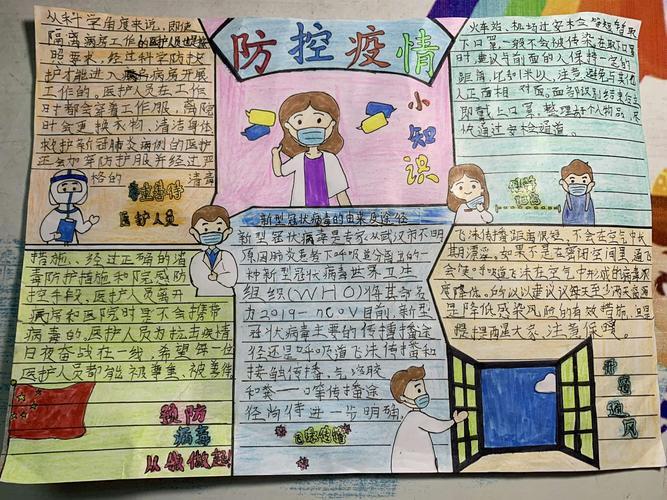 防控疫情
小知识
从科学角度来说，即使
隔离病房工作的医护人员也是按
照要求，经过科学防护
护才能进入病房开展
工作的。医护人员在工作
时都会穿着工作服，离院
时会更换衣物，清洁身体
救护新冠肺炎病例的医护
还会加穿防护服并经过严
格的 消毒
尊重善待
医护人员
措施，经过正确的消
毒防护措施和院感防
控手段，医护人员离开
病房和医院时是不会携带
病毒的，医护人员为抗击疫情
日夜奋战在一线，希望每一位
医护人员都能被尊重，被善待
预防
病毒
从我做起！
新型冠状病毒的由来及途径
新型冠状病毒是专家从武汉市不明
原因肺炎患者下呼吸道
种新型冠状病毒世界卫生
组织(WHO)将其命名
为2019-nCoV目前，新型
冠状病毒主要的传播途
径还是呼吸道飞沫传播和
接触传播，气溶胶
和粪一口等传播途
径尚待进一步明确。
火车站、机场过安检
下口罩一般不会被传染，在取口罩
时，建议与前面的人保持一定的
距离，比如1米以上，注意避免与其他
人正面相对。面部识别结束后立
即戴上口罩，整理好个人物品，尽
快通过安检通道。
保持
距离
飞沫传播距离很短，不会在空气中长
期漂浮。如果不是在密闭空间里，通飞
会使呼吸道飞沫在空气中形成的病毒浓
度降低。所以建议每天至少两次
是降低感染风险的有效措施，但是
提醒大家，注意保暖。
开窗
通风